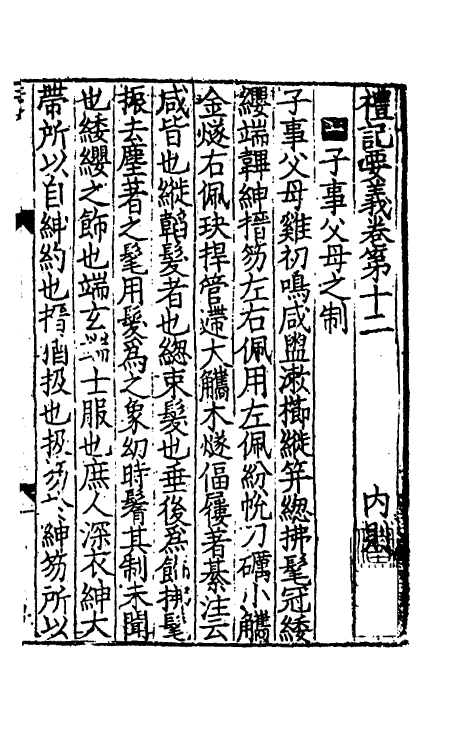 禮記要義卷第十二 內則
一 子事父母之制
子事父母雞初鳴咸盥漱櫛縰筓緫拂髦冠緌
纓端韠紳搢笏左右佩用左佩紛帨刀礪小觿
金燧右佩玦捍管遰大觿木燧偪屨著綦注云
咸皆也縰韜髮者也緫束髮也垂後為飾拂髦
振去塵著之髦用髮為之象幼時鬌其制未聞
也緌纓之飾也端玄端士服也庶人深衣紳大
帶所以自紳約也搢猶扱也扱笏於紳笏所以